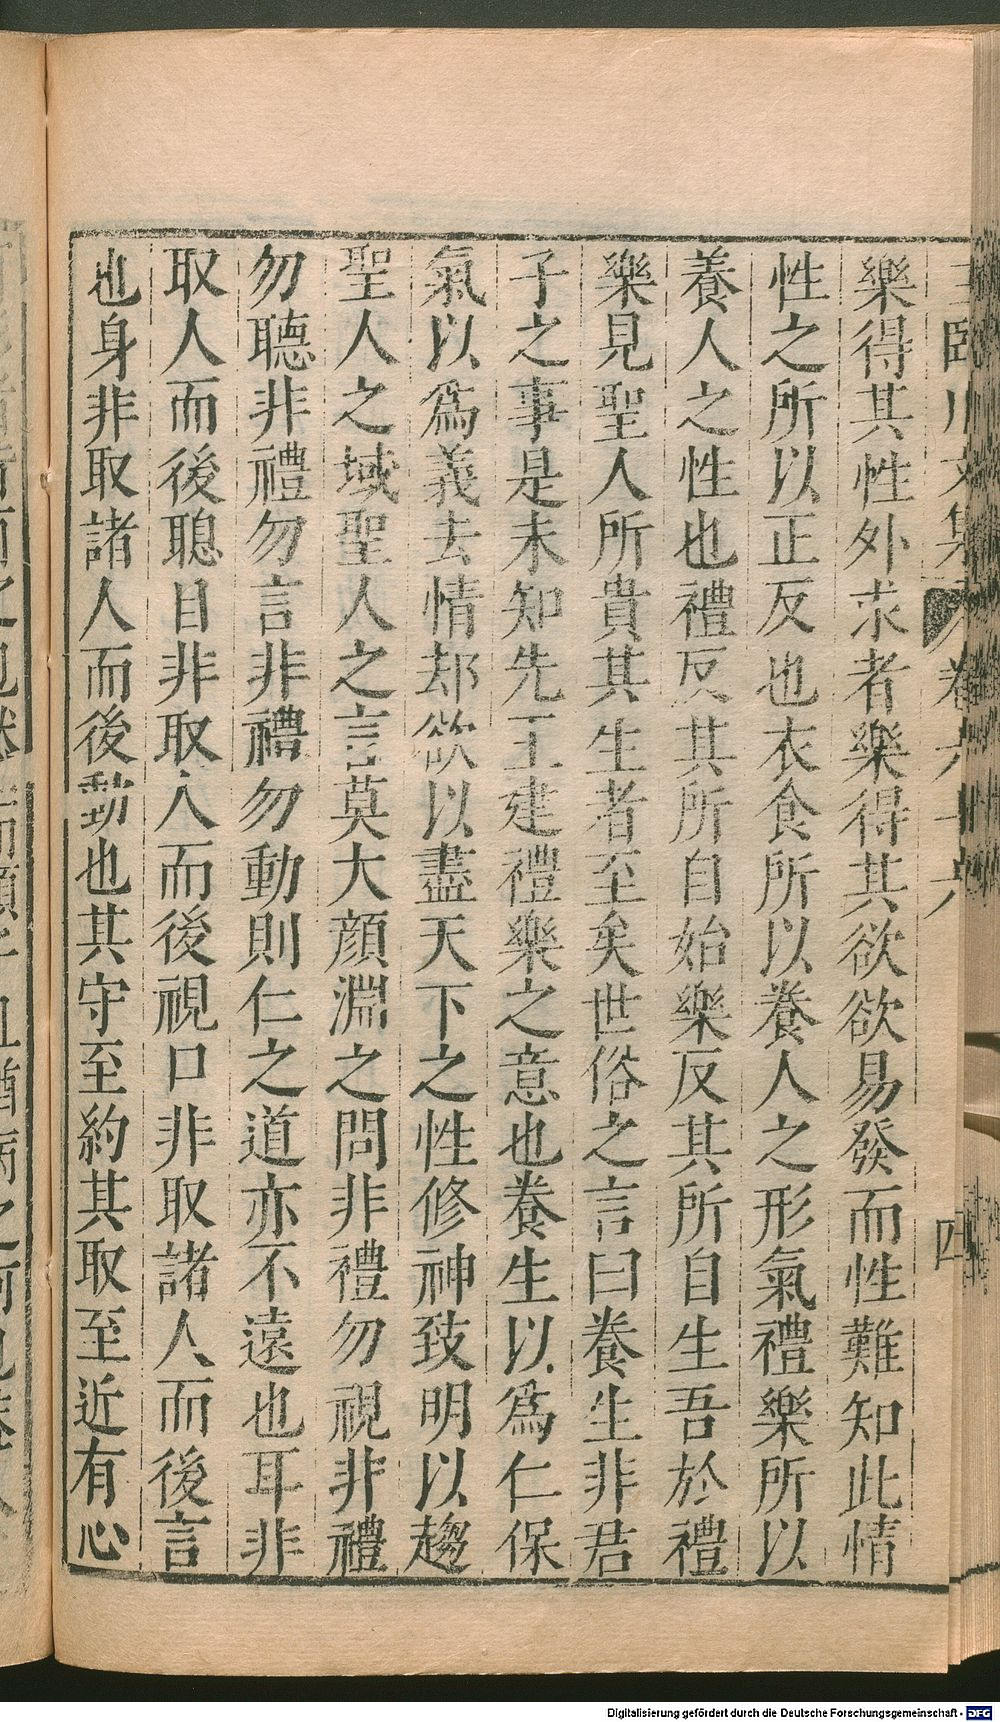 樂得其性外求者樂得其欲欲易發而性難知此情
性之所以正反也衣食所以養人之形氣禮樂所以
養人之性也禮反其所自始樂反其所自生吾於禮
樂見聖人所貴其生者至矣世俗之言曰養生非君
子之事是未知先王建禮樂之意也養生以為仁保
氣以為義去情却欲以盡天下之性修神致明以趨
聖人之域聖人之言莫大顔淵之問非禮勿視非禮
勿聽非禮勿言非禮勿動則仁之道亦不遠也耳非
取人而後聰目非取人而後視口非取諸人而後言
也身非取諸人而後動也其守至約其取至近有心
Digitalisierung gefördert durch die Deutsche Forschungsgemeinschaft - DFG